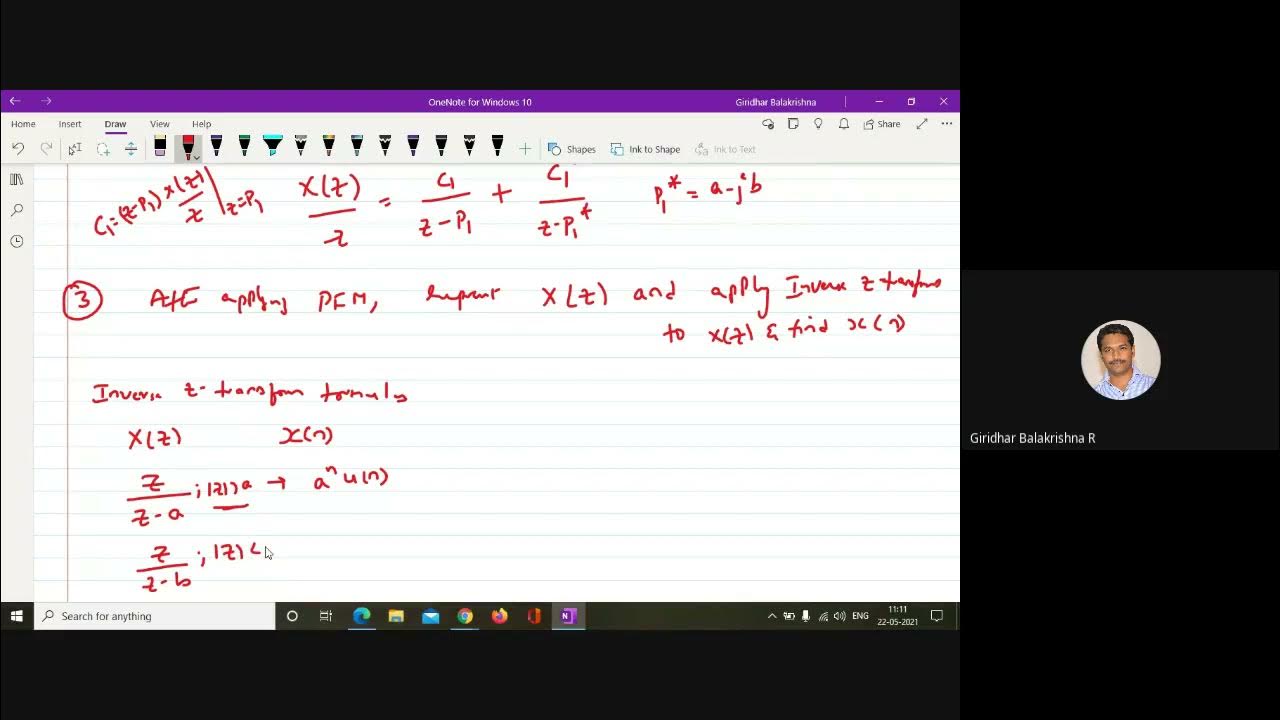 OneNote for Windows 10
Giridhar Balakrishna
Home Insert Draw View Help
Share
Shapes Ink to Shape Ink to Text
C₁=(z-P₁) X(z)/z |z=P₁ X(z)/z = C₁/(z-P₁) + C₁/(z-P₁*) P₁* = a-jb
③ applying PFM, X(z) and apply Inverse z transforms
to X(z) & find x(n)
Inverse z-transform formulas
X(z) x(n)
z/(z-a) ; |z|>a → aⁿ u(n)
z/(z-b) ; |z| <
Giridhar Balakrishna R
Search for anything
ENG
11:11
22-05-2021